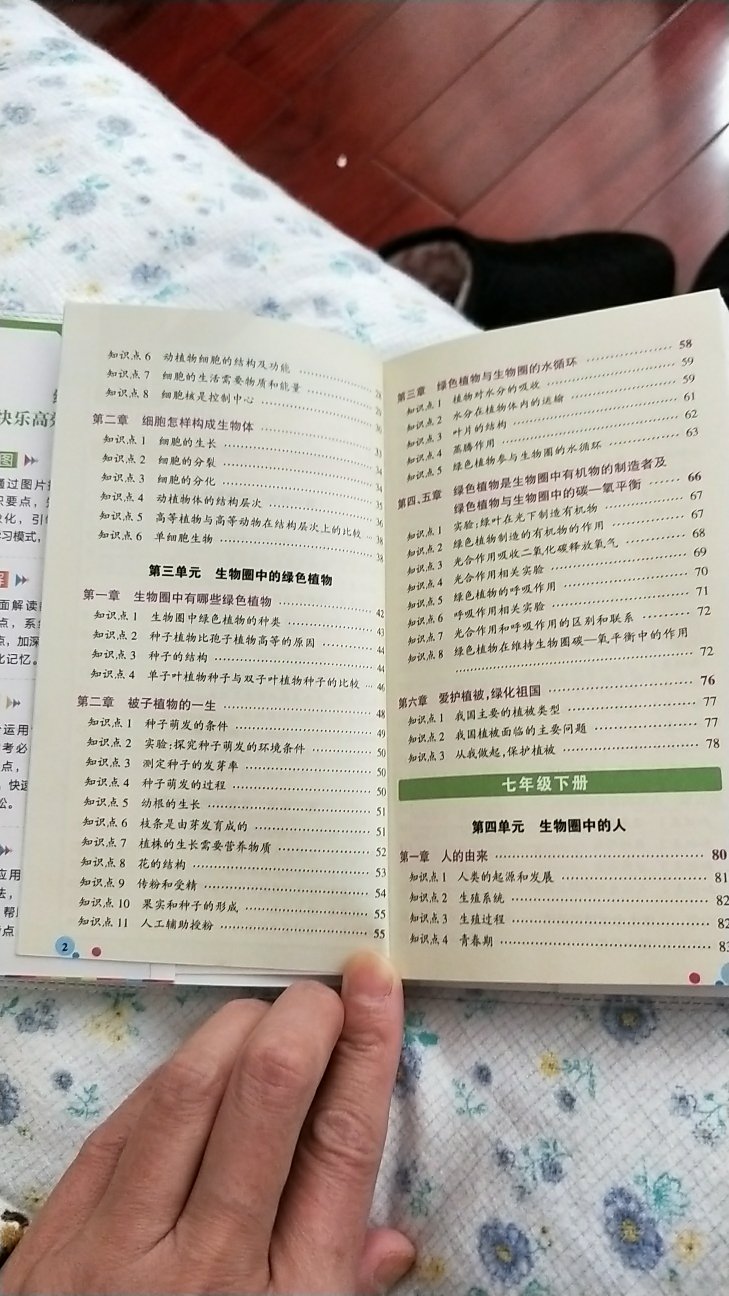 知识点 6 动植物细胞的结构及功能
知识点 7 细胞的生活需要物质和能量
知识点 8 细胞核是控制中心
第二章 细胞怎样构成生物体
知识点 1 细胞的生长
知识点 2 细胞的分裂
知识点 3 细胞的分化
知识点 4 动植物体的结构层次
知识点 5 高等植物与高等动物在结构层次上的比较
知识点 6 单细胞生物 38
第三单元 生物圈中的绿色植物
第一章 生物圈中有哪些绿色植物 42
知识点 1 生物圈中绿色植物的种类 43
知识点 2 种子植物比孢子植物高等的原因 44
知识点 3 种子的结构 44
知识点 4 单子叶植物种子与双子叶植物种子的比较 46
第二章 被子植物的一生 48
知识点 1 种子萌发的条件 49
知识点 2 实验:探究种子萌发的环境条件 50
知识点 3 测定种子的发芽率 50
知识点 4 种子萌发的过程 50
知识点 5 幼根的生长 51
知识点 6 枝条是由芽发育成的 51
知识点 7 植株的生长需要营养物质 52
知识点 8 花的结构 53
知识点 9 传粉和受精 54
知识点 10 果实和种子的形成 55
知识点 11 人工辅助授粉 55
2
第三章 绿色植物与生物圈的水循环 58
知识点 1 植物对水分的吸收 59
知识点 2 水分在植物体内的运输 59
知识点 3 叶片的结构 61
知识点 4 蒸腾作用 62
知识点 5 绿色植物参与生物圈的水循环 63
第四、五章 绿色植物是生物圈中有机物的制造者及
绿色植物与生物圈中的碳—氧平衡 66
知识点 1 实验:绿叶在光下制造有机物 67
知识点 2 绿色植物制造的有机物的作用 67
知识点 3 光合作用吸收二氧化碳释放氧气 68
知识点 4 光合作用相关实验 69
知识点 5 绿色植物的呼吸作用 70
知识点 6 呼吸作用相关实验 71
知识点 7 光合作用和呼吸作用的区别和联系 72
知识点 8 绿色植物在维持生物圈碳—氧平衡中的作用
72
第六章 爱护植被,绿化祖国 76
知识点 1 我国主要的植被类型 77
知识点 2 我国植被面临的主要问题 77
知识点 3 从我做起,保护植被 78
七年级下册
第四单元 生物圈中的人
第一章 人的由来 80
知识点 1 人类的起源和发展 81
知识点 2 生殖系统 82
知识点 3 生殖过程 82
知识点 4 青春期